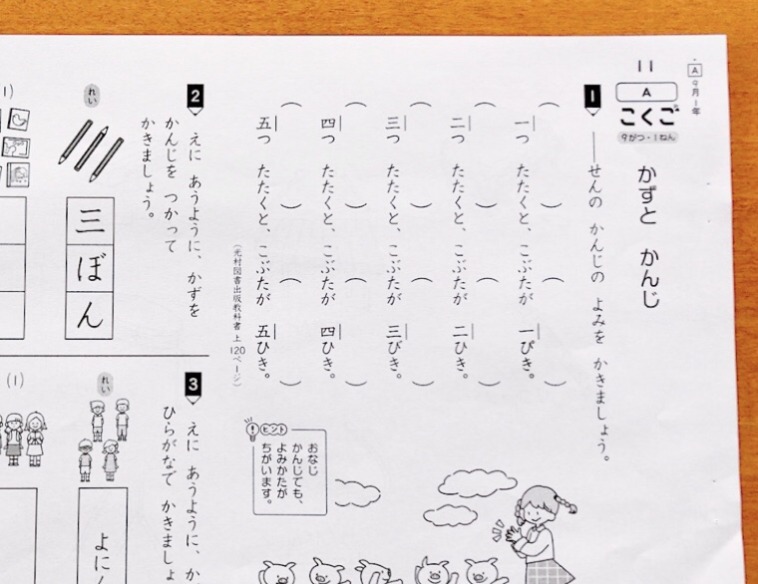 A
9月 1年
11
A
こくご
9がつ・1ねん
かずと かんじ
1
──せんの かんじの よみを かきましょう。
一つ たたくと、こぶたが 一ぴき。
二つ たたくと、こぶたが 二ひき。
三つ たたくと、こぶたが 三びき。
四つ たたくと、こぶたが 四ひき。
五つ たたくと、こぶたが 五ひき。
(光村図書出版教科書 上 120ページ)
ヒント
おなじ
かんじでも、
よみかたが
ちがいます。
2
えに あうように、かずを
かんじを つかって
かきましょう。
れい
三ぼん
(1)
3
えに あうように、か
ひらがなで かきましょ
れい
よにん
(1)